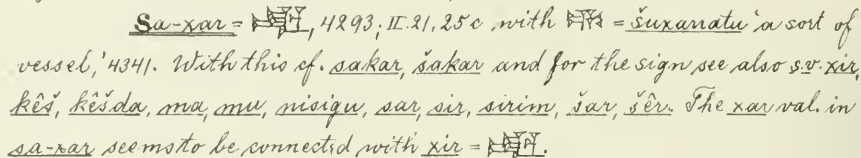 Sa-xar = 𒊬, 4293; II. 21, 25 c, with = šuxarratu 'a sort of
vessel,' 4341. With this cf. sakar, šakar and for the sign see also s.v. xir,
kêš, kêšda, ma, mu, nisigu, sar, sir, sirim, šar, šêr. The xar val. in
sa-xar seems to be connected with xir = 𒊬.